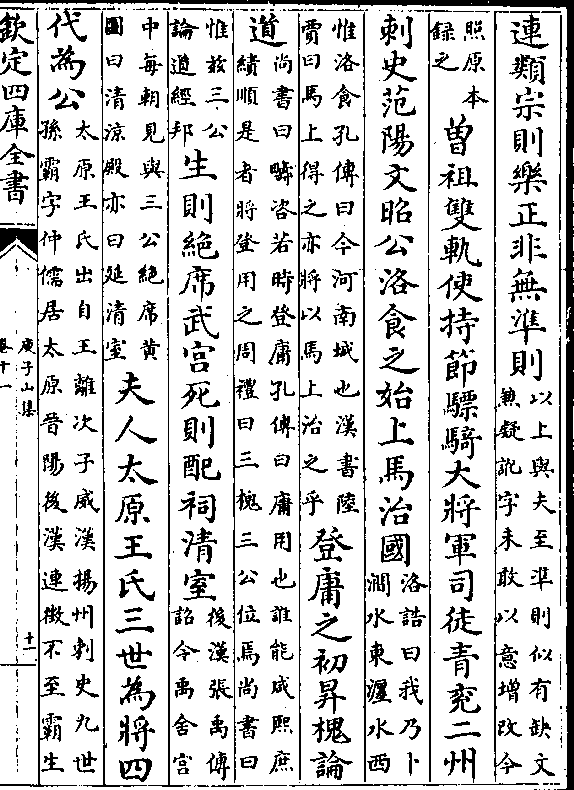 連類宗則樂正非無準則以上與夫至準則似有缺文兼疑訛字未敢以意增改今
照原本録之曾祖雙軌使持節驃騎大將軍司徒青兖二州
刺史范陽文昭公洛食之始上馬治國洛誥曰我乃卜澗水東瀍水西
惟洛食孔傳曰今河南城也漢書陸賈曰馬上得之亦將以馬上治之乎登庸之初昇槐論
道尚書曰疇咨若時登庸孔傳曰庸用也誰能咸熙庶績順是者將登用之周禮曰三槐三公位焉尚書曰
惟兹三公論道經邦生則絕席武宫死則配祠清室後漢張禹傳詔令禹舍宫
中每朝見與三公絕席黄圖曰清涼殿亦曰延清室夫人太原王氏三世為將四
代為公太原王氏出自王離次子威漢揚州刺史九世孫霸字仲儒居太原晉陽後漢連徵不至霸生
欽定四庫全書
庾子山集
卷十一
十一